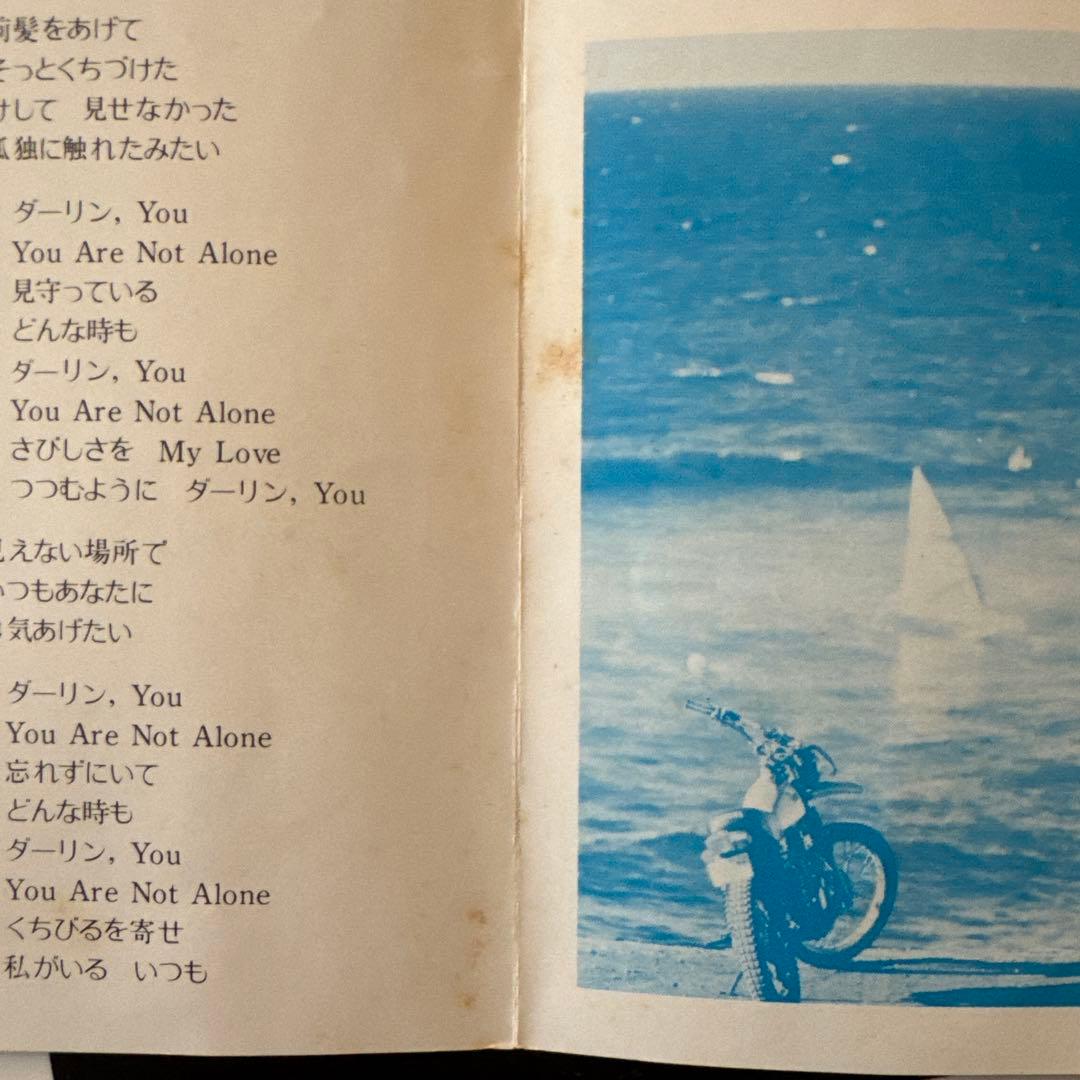 前髪をあげて
そっとくちづけた
けして 見せなかった
孤独に触れたみたい
ダーリン, You
You Are Not Alone
見守っている
どんな時も
ダーリン, You
You Are Not Alone
さびしさを My Love
つつむように ダーリン, You
見えない場所で
いつもあなたに
勇気あげたい
ダーリン, You
You Are Not Alone
忘れずにいて
どんな時も
ダーリン, You
You Are Not Alone
くちびるを寄せ
私がいる いつも